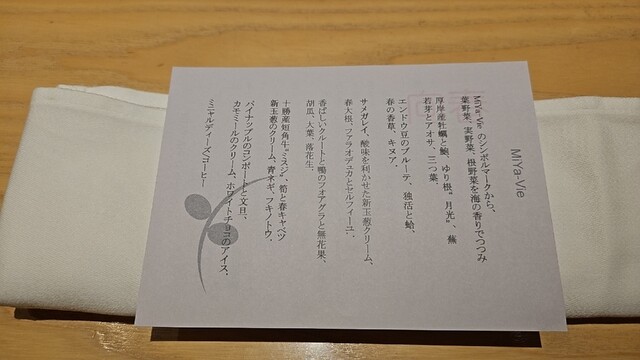 MiYa-Vie
MiYa-Vie のシンボルマークから、
葉野菜、実野菜、根野菜を海の香りでつつみ
厚岸産牡蠣と鮑、ゆり根〝月光〟、蕪
若芽とアオサ、三つ葉、
エンドウ豆のブルーテ、独活と蛤、
春の香草、キヌア、
サメガレイ、酸味を利かせた新玉葱クリーム、
春大根、ファラオデュカとセルフィーユ、
香ばしいクルートと鴨のフォアグラと無花果、
胡瓜、大葉、落花生、
十勝産短角牛〝ミスジ〟筍と春キャベツ
新玉葱のクリーム、青ネギ、フキノトウ、
パイナップルのコンポートと文旦、
カモミールのクリーム、ホワイトチョコのアイス、
ミニャルディーズ、コーヒー